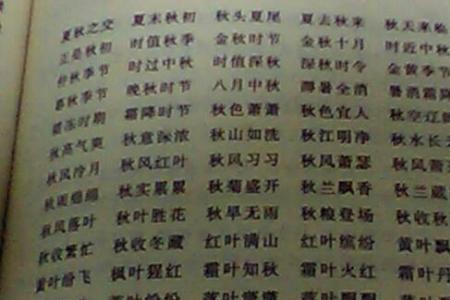 夏秋之交 夏末秋初 秋头夏尾 夏去秋来 秋天来临
正是秋初 时值秋季 金秋时节 金秋十月 时近中秋
仲秋季节 时过中秋 时值深秋 深秋时令 金黄季节
暮秋季节 晚秋时节 八月中秋 溽暑全消 暑消霜降
霜冻时期 霜降时节 秋色萧萧 秋色宜人 秋空辽
秋高气爽 秋意深浓 秋山如洗 秋江明净 秋水长
秋风冷月 秋风红叶 秋风习习 秋风萧瑟 秋风萧
秋雨绵绵 秋实累累 秋菊盛开 秋兰飘香 秋兰
秋风落叶 秋叶胜花 秋旱无雨 秋粮登场 秋收秋
秋收繁忙 秋收冬藏 红叶满山 红叶缤纷 黄叶飘
黄叶纷飞 枫叶猩红 霜叶知秋 霜叶火红 霜叶丹
落叶纷纷 落叶